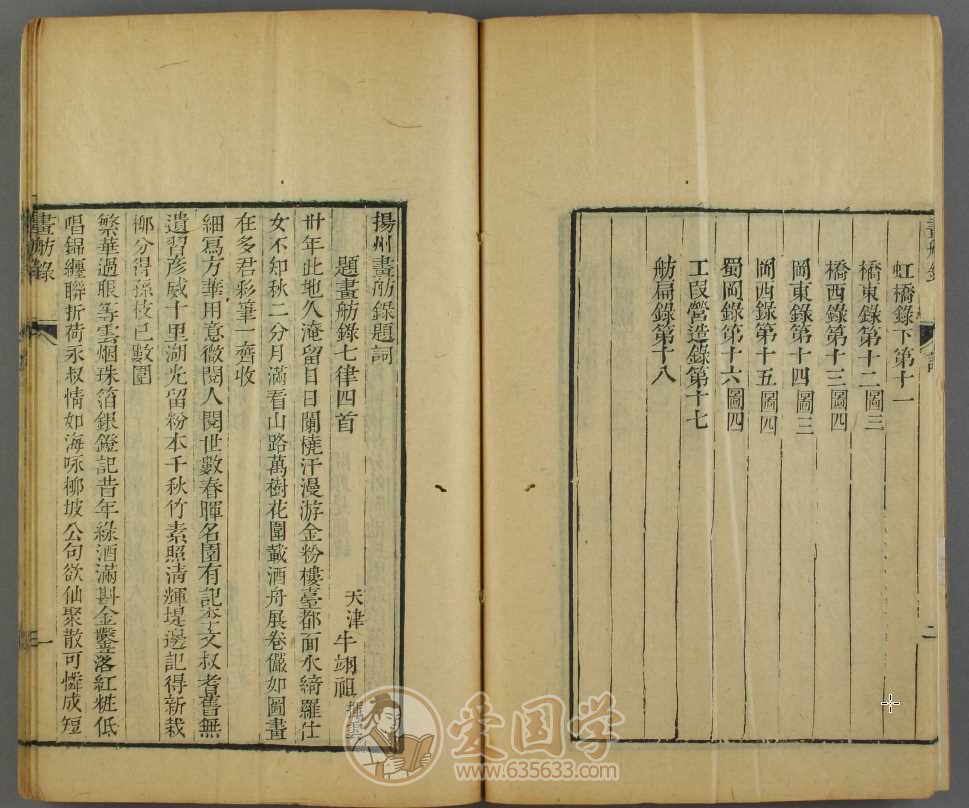 虹橋錄下第十一
橋東錄第十二圖三
橋西錄第十三圖四
岡東錄第十四圖三
岡西錄第十五圖四
蜀岡錄第十六圖四
工段營造錄第十七
舫扁錄第十八
二
揚州畫舫錄題詞
題畫舫錄七律四首
天津牛翊祖
卅年此地久淹留日日闌橈汗漫游金粉樓臺都面水綺羅仕
女不知秋二分月滿看山路萬樹花圍載酒舟展卷儼如圖畫
在多君彩筆一齊收
細寫方華用意微閱人閱世數春暉名園有記李文叔耆舊無
遺習彥威十里湖光留粉本千秋竹素照淸輝堤邊記得新栽
柳分得孫枝已數圍
繁華過眼等雲烟珠箔銀鐙記昔年綠酒滿斟金鑿落紅粧低
唱錦纏聯折荷永叔情如海咏柳坡公句欲仙聚散可憐成短
畫舫錄
一
爱国学
www.635633.com